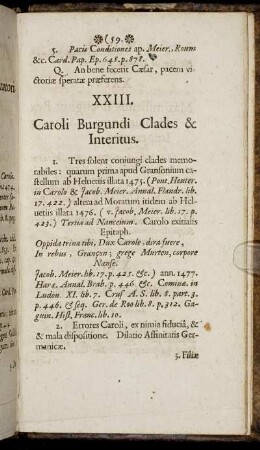 ( 59. )
5. Pacis Conditiones ap. Meier, Roum
&c. Card. Pap. Ep. 648. p. 878.
Q. An bene fecerit Cæsar, pacem vi-
ctoriæ speratæ præferens.
XXIII.
Caroli Burgundi Clades &
Interitus.
1. Tres solent coniungi clades memo-
rabiles: quarum prima apud Gransonium ca-
stellum ab Helvetiis illata 1475. (Pont. Heuter.
in Carolo & Jacob. Meier. Annal. Flandr. lib.
17. p. 422.) altera ad Moratum itidem ab Hel-
vetiis illata 1476. (v. Jacob. Meier. lib. 17. p.
423.) Tertia ad Nanceium. Carolo exitialis
Epitaph.
Oppida trina tibi, Dux Carole, dira fuere,
In rebus, Granson; grege Murten, corpore
Nanse.
Jacob. Meier. lib. 17. p. 425. &c.) ann. 1477.
Haræ. Annal. Brab. p. 446. & c. Comine. in
Ludov. XI. lib. 7. Cruf A. S. lib. 8. part. 3.
p. 446. & seq. Ger. de Roo lib. 8. p. 312. Ga-
guin. Hist. Franc. lib. 10.
2. Errores Caroli, ex nimia fiduciâ, &
& mala dispositione. Dilatio Affinitatis Ger-
manicæ.
3. Filiæ